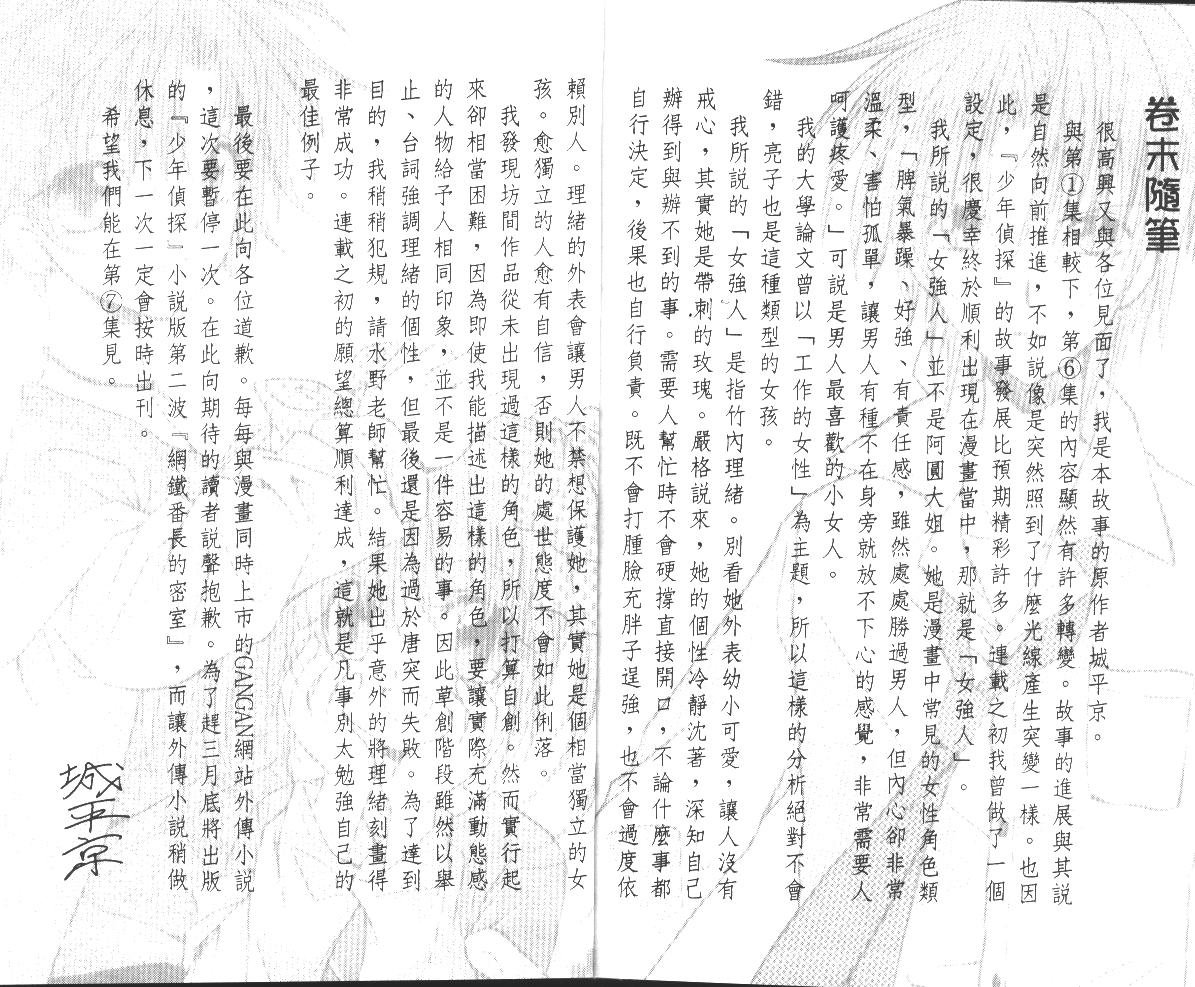 卷末隨筆
很高興又與各位見面了，我是本故事的原作者城平京。
與第①集相較下，第⑥集的內容顯然有許多轉變。故事的進展與其説
是自然向前推進，不如説像是突然照到了什麼光線產生突變一樣。也因
此，『少年偵探』的故事發展比預期精彩許多。連載之初我曾做了一個
設定，很慶幸終於順利出現在漫畫當中，那就是「女強人」。
我所說的「女強人」並不是阿圓大姐。她是漫畫中常見的女性角色類
型，「脾氣暴躁、好強、有責任感，雖然處處勝過男人，但內心卻非常
溫柔、害怕孤單，讓男人有種不在身旁就放不下心的感覺，非常需要人
呵護疼愛。」可說是男人最喜歡的小女人。
我的大學論文曾以「工作的女性」為主題，所以這樣的分析絕對不會
錯，亮子也是這種類型的女孩。
我所說的「女強人」是指竹內理緒。別看她外表幼小可愛，讓人沒有
戒心，其實她是帶刺的玫瑰。嚴格説來，她的個性冷靜沈著，深知自己
辦得到與辦不到的事。需要人幫忙時不會硬撐直接開口，不論什麼事都
自行決定，後果也自行負責。既不會打腫臉充胖子逞強，也不會過度依
賴別人。理緒的外表會讓男人不禁想保護她，其實她是個相當獨立的女
孩。愈獨立的人愈有自信，否則她的處世態度不會如此俐落。
我發現坊間作品從未出現過這樣的角色，所以打算自創。然而實行起
來卻相當困難，因為即使我能描述出這樣的角色，要讓實際充滿動態感
的人物給予人相同印象，並不是一件容易的事。因此草創階段雖然以舉
止、台詞強調理緒的個性，但最後還是因為過於唐突而失敗。為了達到
目的，我稍稍犯規，請水野老師幫忙。結果她出乎意外的將理緒刻畫得
非常成功。連載之初的願望總算順利達成，這就是凡事別太勉強自己的
最佳例子。
最後要在此向各位道歉。每每與漫畫同時上市的GANGAN網站外傳小說
，這次要暫停一次。在此向期待的讀者説聲抱歉。為了趕三月底將出版
的『少年偵探』小說版第二波『網鐵番長的密室』，而讓外傳小說稍做
休息，下一次一定會按時出刊。
希望我們能在第⑦集見。
城平京